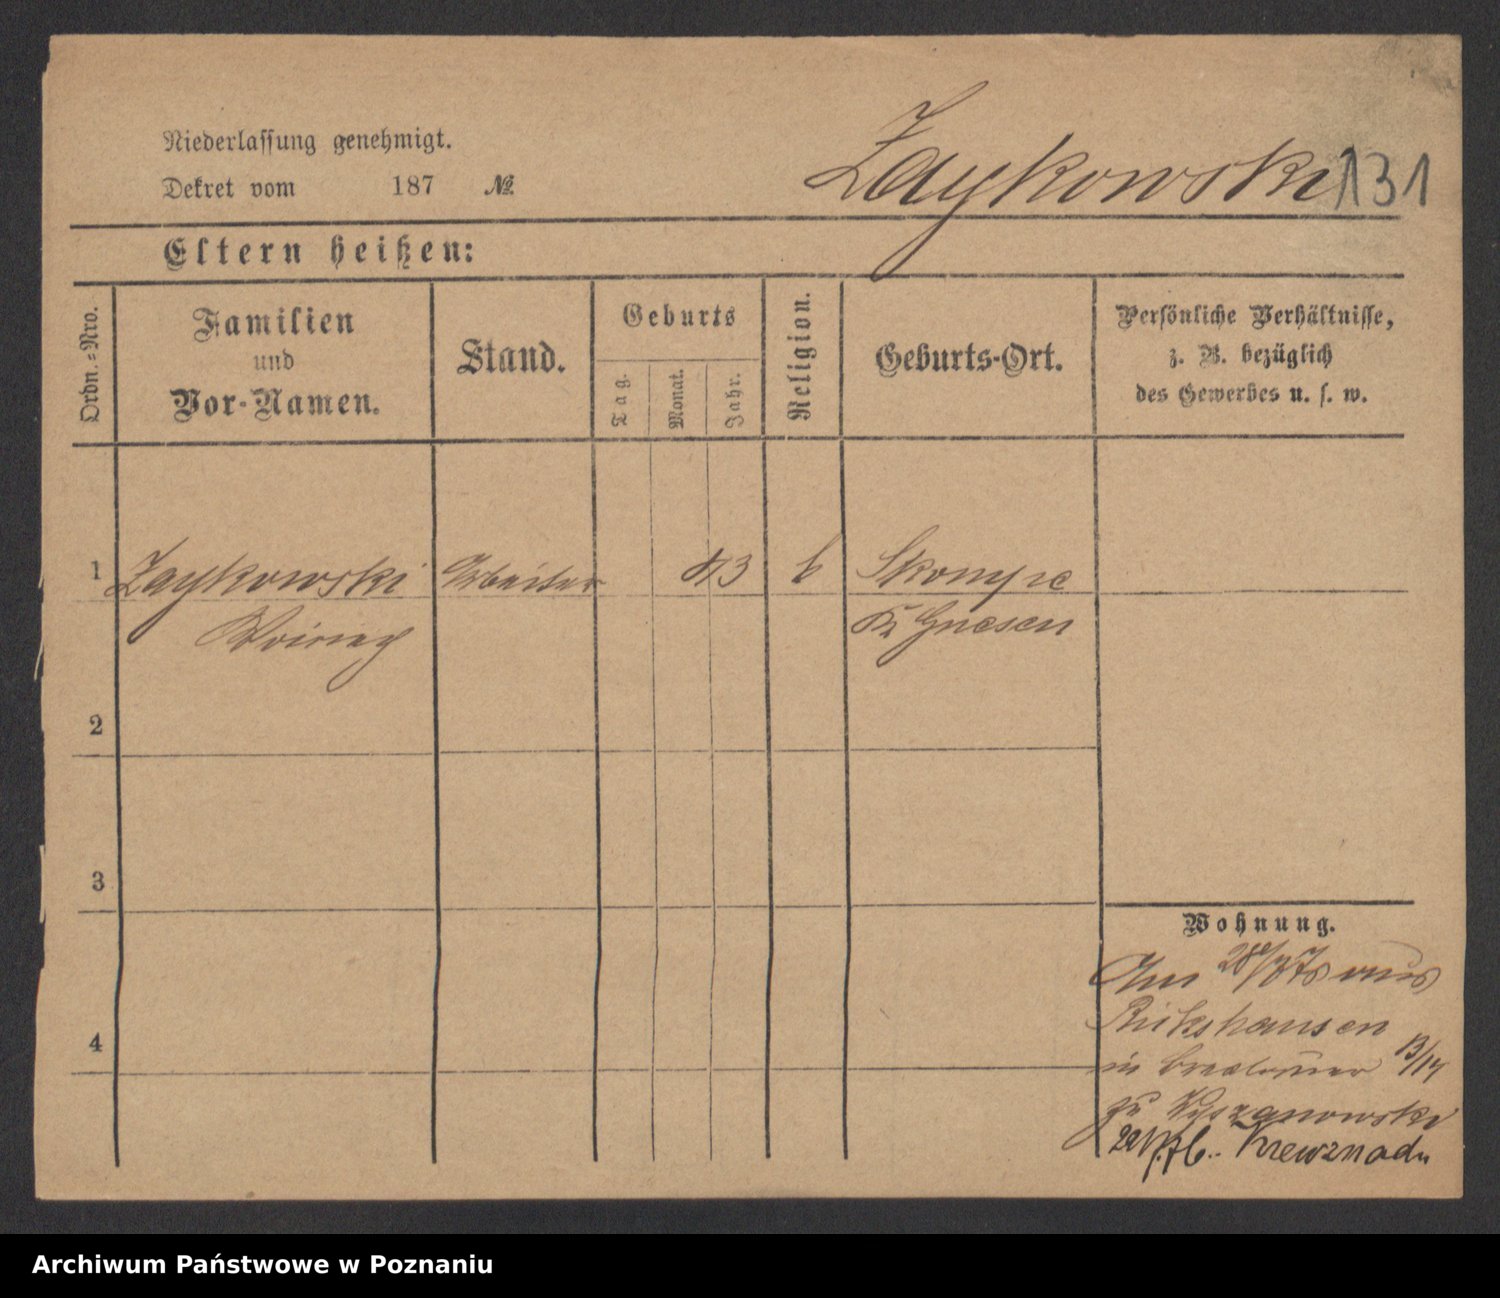 Niederlassung genehmigt.
Dekret vom 187 №
Zaykowski 131
Eltern heißen:
Ordn.=Nro.
Familien
und
Vor-Namen.
Stand.
Geburts
Tag.
Monat.
Jahr.
Religion.
Geburts-Ort.
Persönliche Verhältnisse,
z. B. bezüglich
des Gewerbes u. s. w.
1 Zaykowski Arbeiter 43 k
Kr Gnesen
2
3
4
Wohnung.
Am 28/7 75 aus
in 13/14
zu
Archiwum Państwowe w Poznaniu